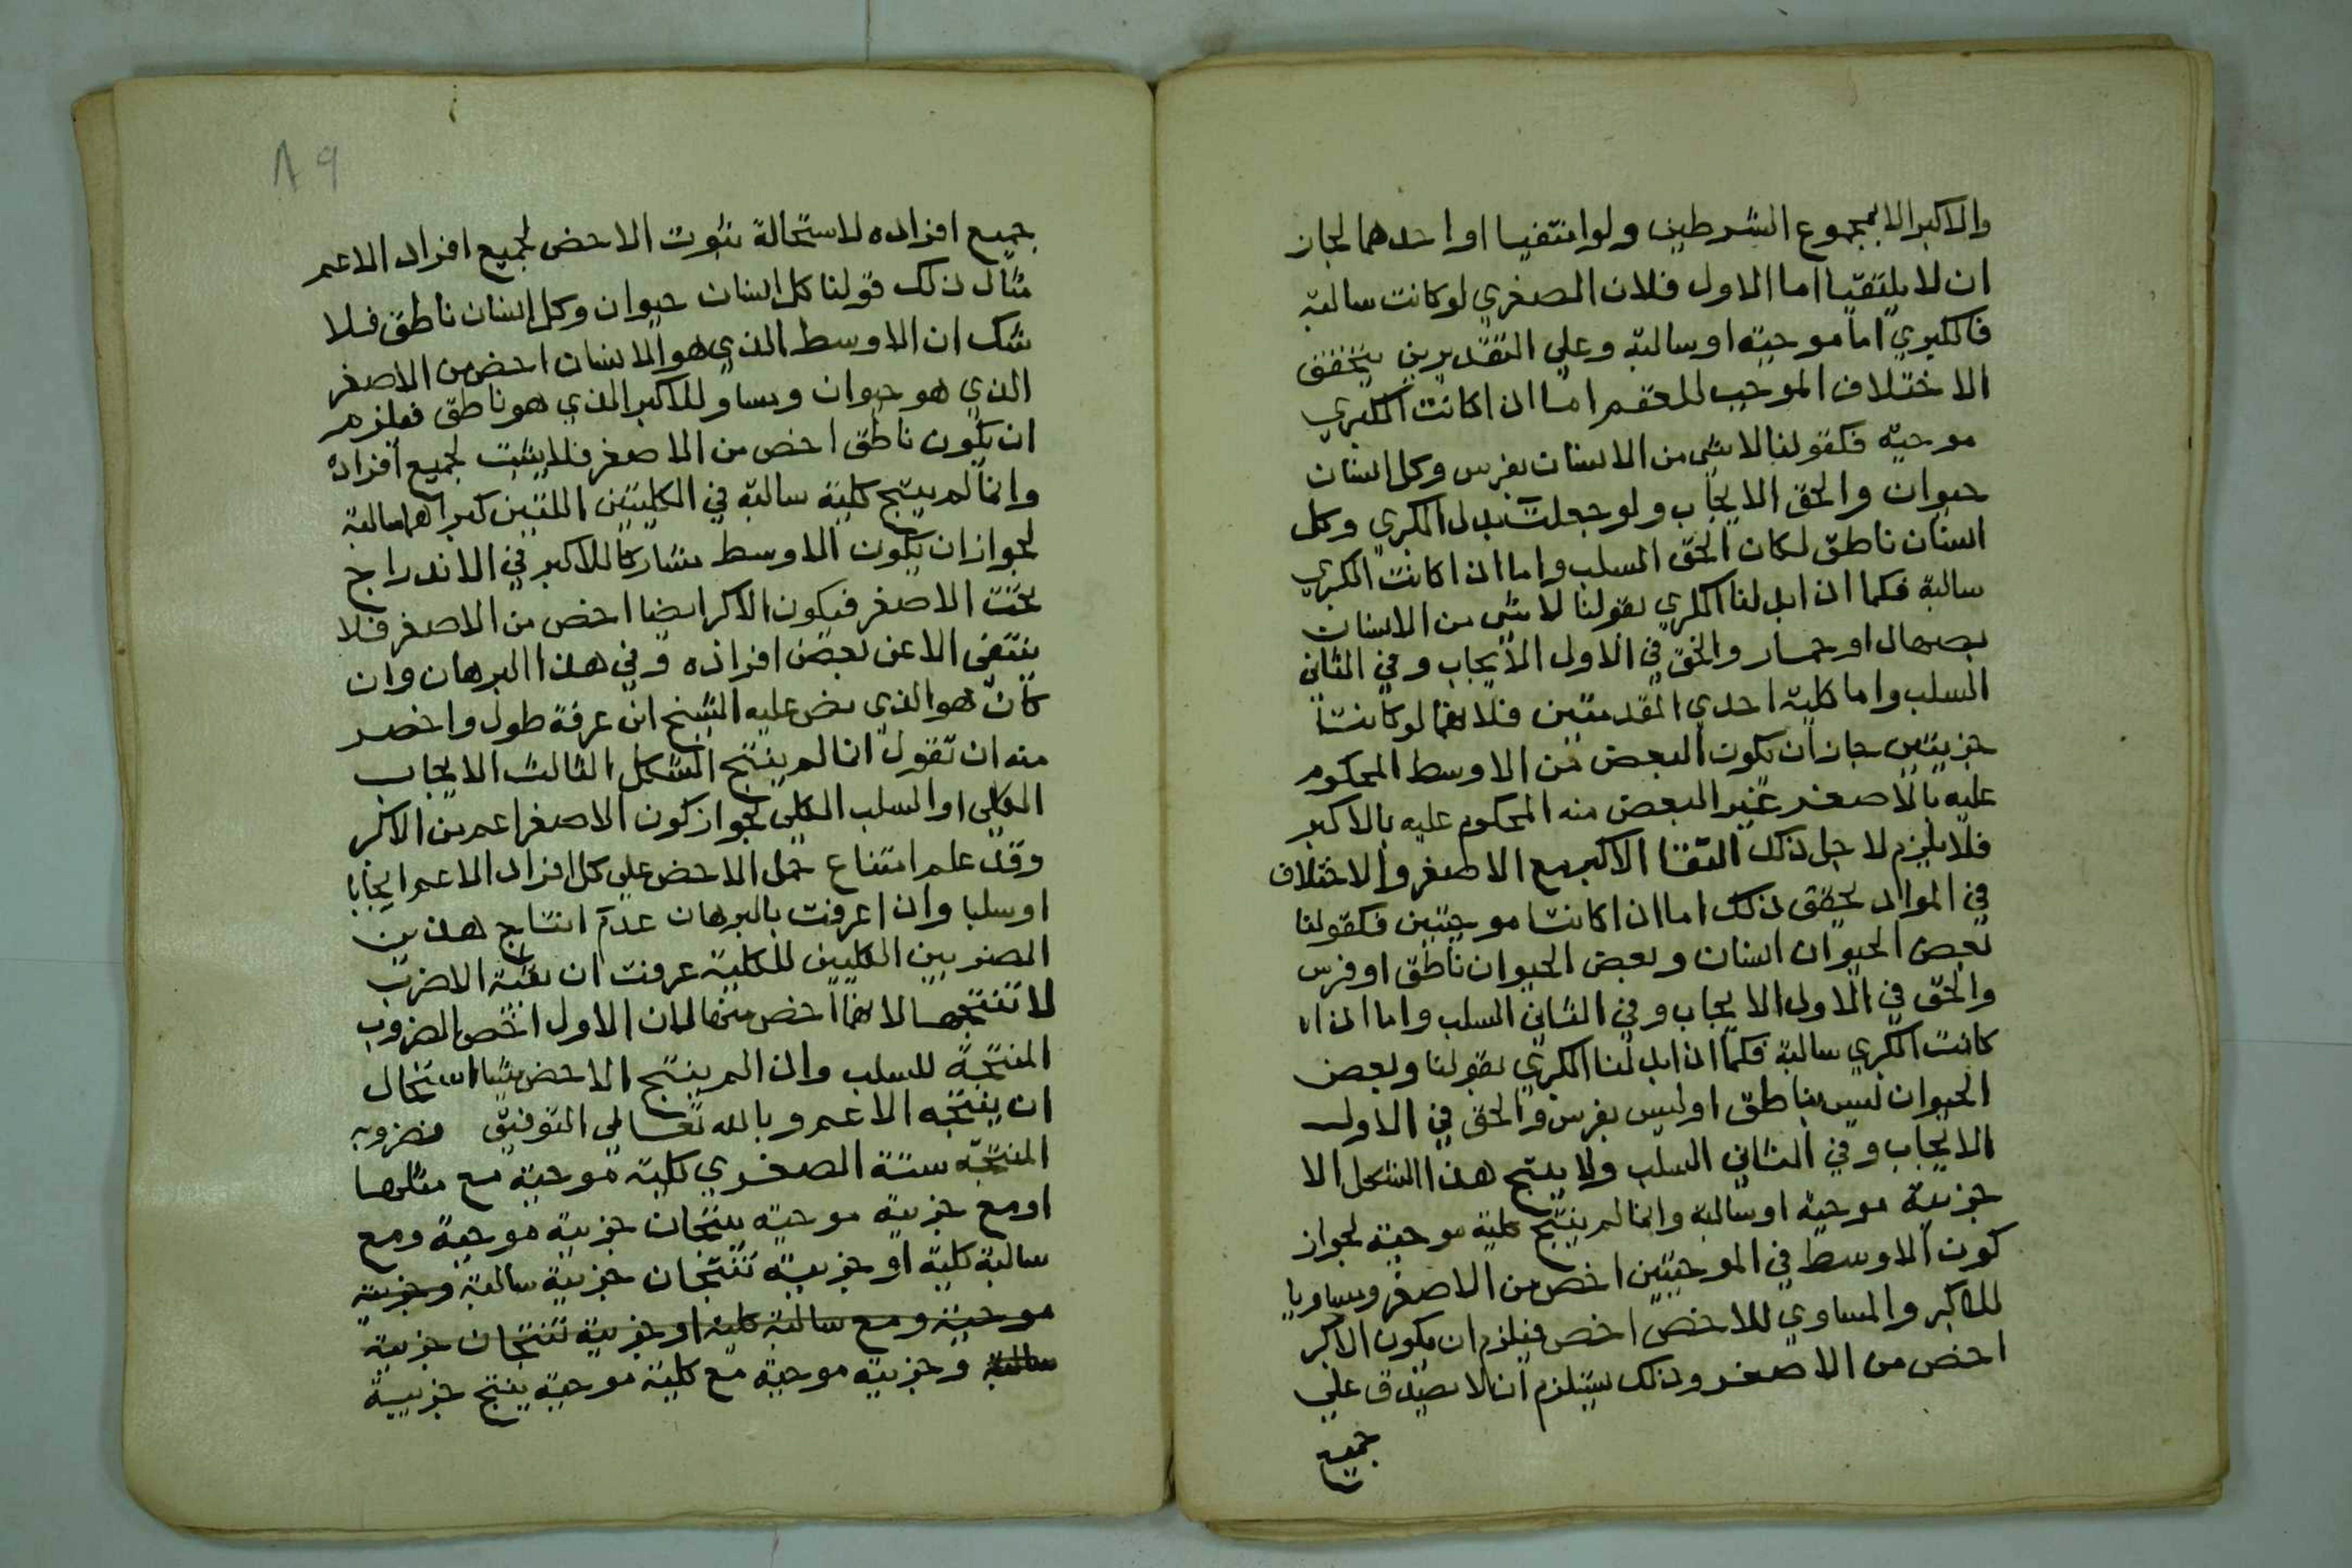 والاكبر الا بمجموع الشرطين ولو انتفيا او احدهما لجاز
ان لا يلتقيا اما الاول فلان الصغري لو كانت سالبة
فالكبري اما موجبة او سالبة وعلي التقديرين يتحقق
الاختلاف الموجب للعقم اما اذا كانت الكبري
موجبة فكقولنا لا شي من الانسان بفرس وكل انسان
حيوان والحق الايجاب ولو جعلت بدل الكبري وكل
انسان ناطق لكان الحق السلب واما اذا كانت الكبري
سالبة فكما اذا ابدلنا الكبري بقولنا لا شي من الانسان
بصهال او حمار والحق في الاول الايجاب وفي الثاني
السلب واما كلية احدي المقدمتين فلانهما لو كانتا
جزيتين جاز ان يكون البعض من الاوسط المحكوم
عليه بالاصغر غير البعض منه المحكوم عليه بالاكبر
فلا يلزم لاجل ذلك التقا الاكبر مع الاصغر والاختلاف
في المواد يحقق ذلك اما اذا كانتا موجبتين فكقولنا
بعض الحيوان انسان وبعض الحيوان ناطق او فرس
والحق في الاول الايجاب وفي الثاني السلب واما اذا
كانت الكبري سالبة فكما اذا ابدلنا الكبري بقولنا وبعض
الحيوان ليس بناطق او ليس بفرس والحق في الاول
الايجاب وفي الثاني السلب ولا ينتج هذا الشكل الا
جزيية موجبة او سالبة وانما لم ينتج كلية موجبة لجواز
كون الاوسط في الموجبتين اخص من الاصغر ومساويا
للاكبر والمساوي للاخص اخص فيلزم ان يكون الاكبر
اخص من الاصغر وذلك يستلزم ان لا يصدق علي
جميع
٨٩
جميع افراده لاستحالة ثبوت الاخص لجميع افراد الاعم
مثال ذلك قولنا كل انسان حيوان وكل انسان ناطق فلا
شك ان الاوسط الذي هو الانسان اخص من الاصغر
الذي هو حيوان ومساو للاكبر الذي هو ناطق فيلزم
ان يكون ناطق اخص من الاصغر فلا يثبت لجميع افراده
وانما لم ينتج كلية سالبة في الكليتين اللتين كبراهما سالبة
لجواز ان يكون الاوسط مشاركا للاكبر في الاندراج
تحت الاصغر فيكون الاكبر ايضا اخص من الاصغر فلا
ينتفي الا عن بعض افراده وفي هذا البرهان وان
كان هو الذي نص عليه الشيخ ابن عرفة طول واخصر
منه ان تقول انما لم ينتج الشكل الثالث الايجاب
الكلي او السلب الكلي لجواز كون الاصغر اعم من الاكبر
وقد علم امتناع حمل الاخص علي كل افراد الاعم ايجابا
او سلبا واذا عرفت بالبرهان عدم انتاج هذين
الضربين الكليين للكلية عرفت ان بقية الاضرب
لا تنتجها لانهما اخص منها لان الاول اخص الضروب
المنتجة للسلب واذا لم ينتج الاخص شيا استحال
ان ينتجه الاعم وبالله تعالي التوفيق فضروبه
المنتجة ستة الصغري كلية موجبة مع مثلها
او مع جزيية موجبة ينتجان جزيية موجبة ومع
سالبة كلية او جزيية تنتجان جزيية سالبة وجزيية
موجبة ومع سالبة كلية او جزيية تنتجان جزيية
سالبة وجزيية موجبة مع كلية موجبة ينتج جزيية